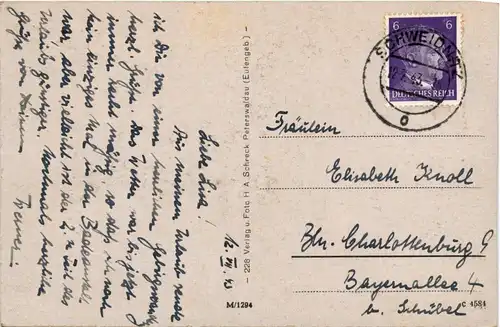 12. VII. 43
Liebe Lisa!
Aus meinem Urlaub sende
ich Dir von einer herrlichen Gebirgswanderung
herzl. Grüße. Das Wetter war bis jetzt
immer recht mäßig, so daß ich noch
kein einziges Mal in der Badeanstalt
war, aber vielleicht ist der 2. Teil des
Urlaubs günstiger. Nochmals herzliche
Grüße von Deinem
M/1294
– 228 Verlag u. Foto H. A. Schreck Peterswaldau (Eulengeb.) –
6 6
DEUTSCHES REICH
SCHWEIDNITZ
Fräulein
Elisabeth Knoll
Bln. Charlottenburg 9
Bayernallee 4
b. Schübel
C 4584